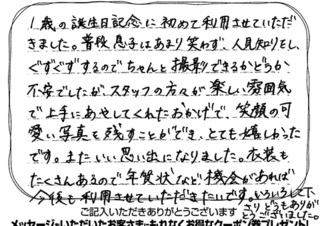 1歳の誕生日記念に初めて利用させていただ
きました。普段息子はあまり笑わず、人見知りもし、
ぐずぐずするのでちゃんと撮影できるかどうか
不安でしたが、スタッフの方々が楽しい雰囲気
で上手にあやしてくれたおかげで、笑顔の可
愛い写真を残すことができ、とても嬉しかった
です。またいい思い出になりました。衣装も
たくさんあるので年賀状など機会があれば
今後も利用させていただきたいです。いろいろして下
さりどうもありが
とうございました。
ご記入いただきありがとうございます
メッセージをいただいたお客さまにもれなくお得なクーポン券プレゼント!